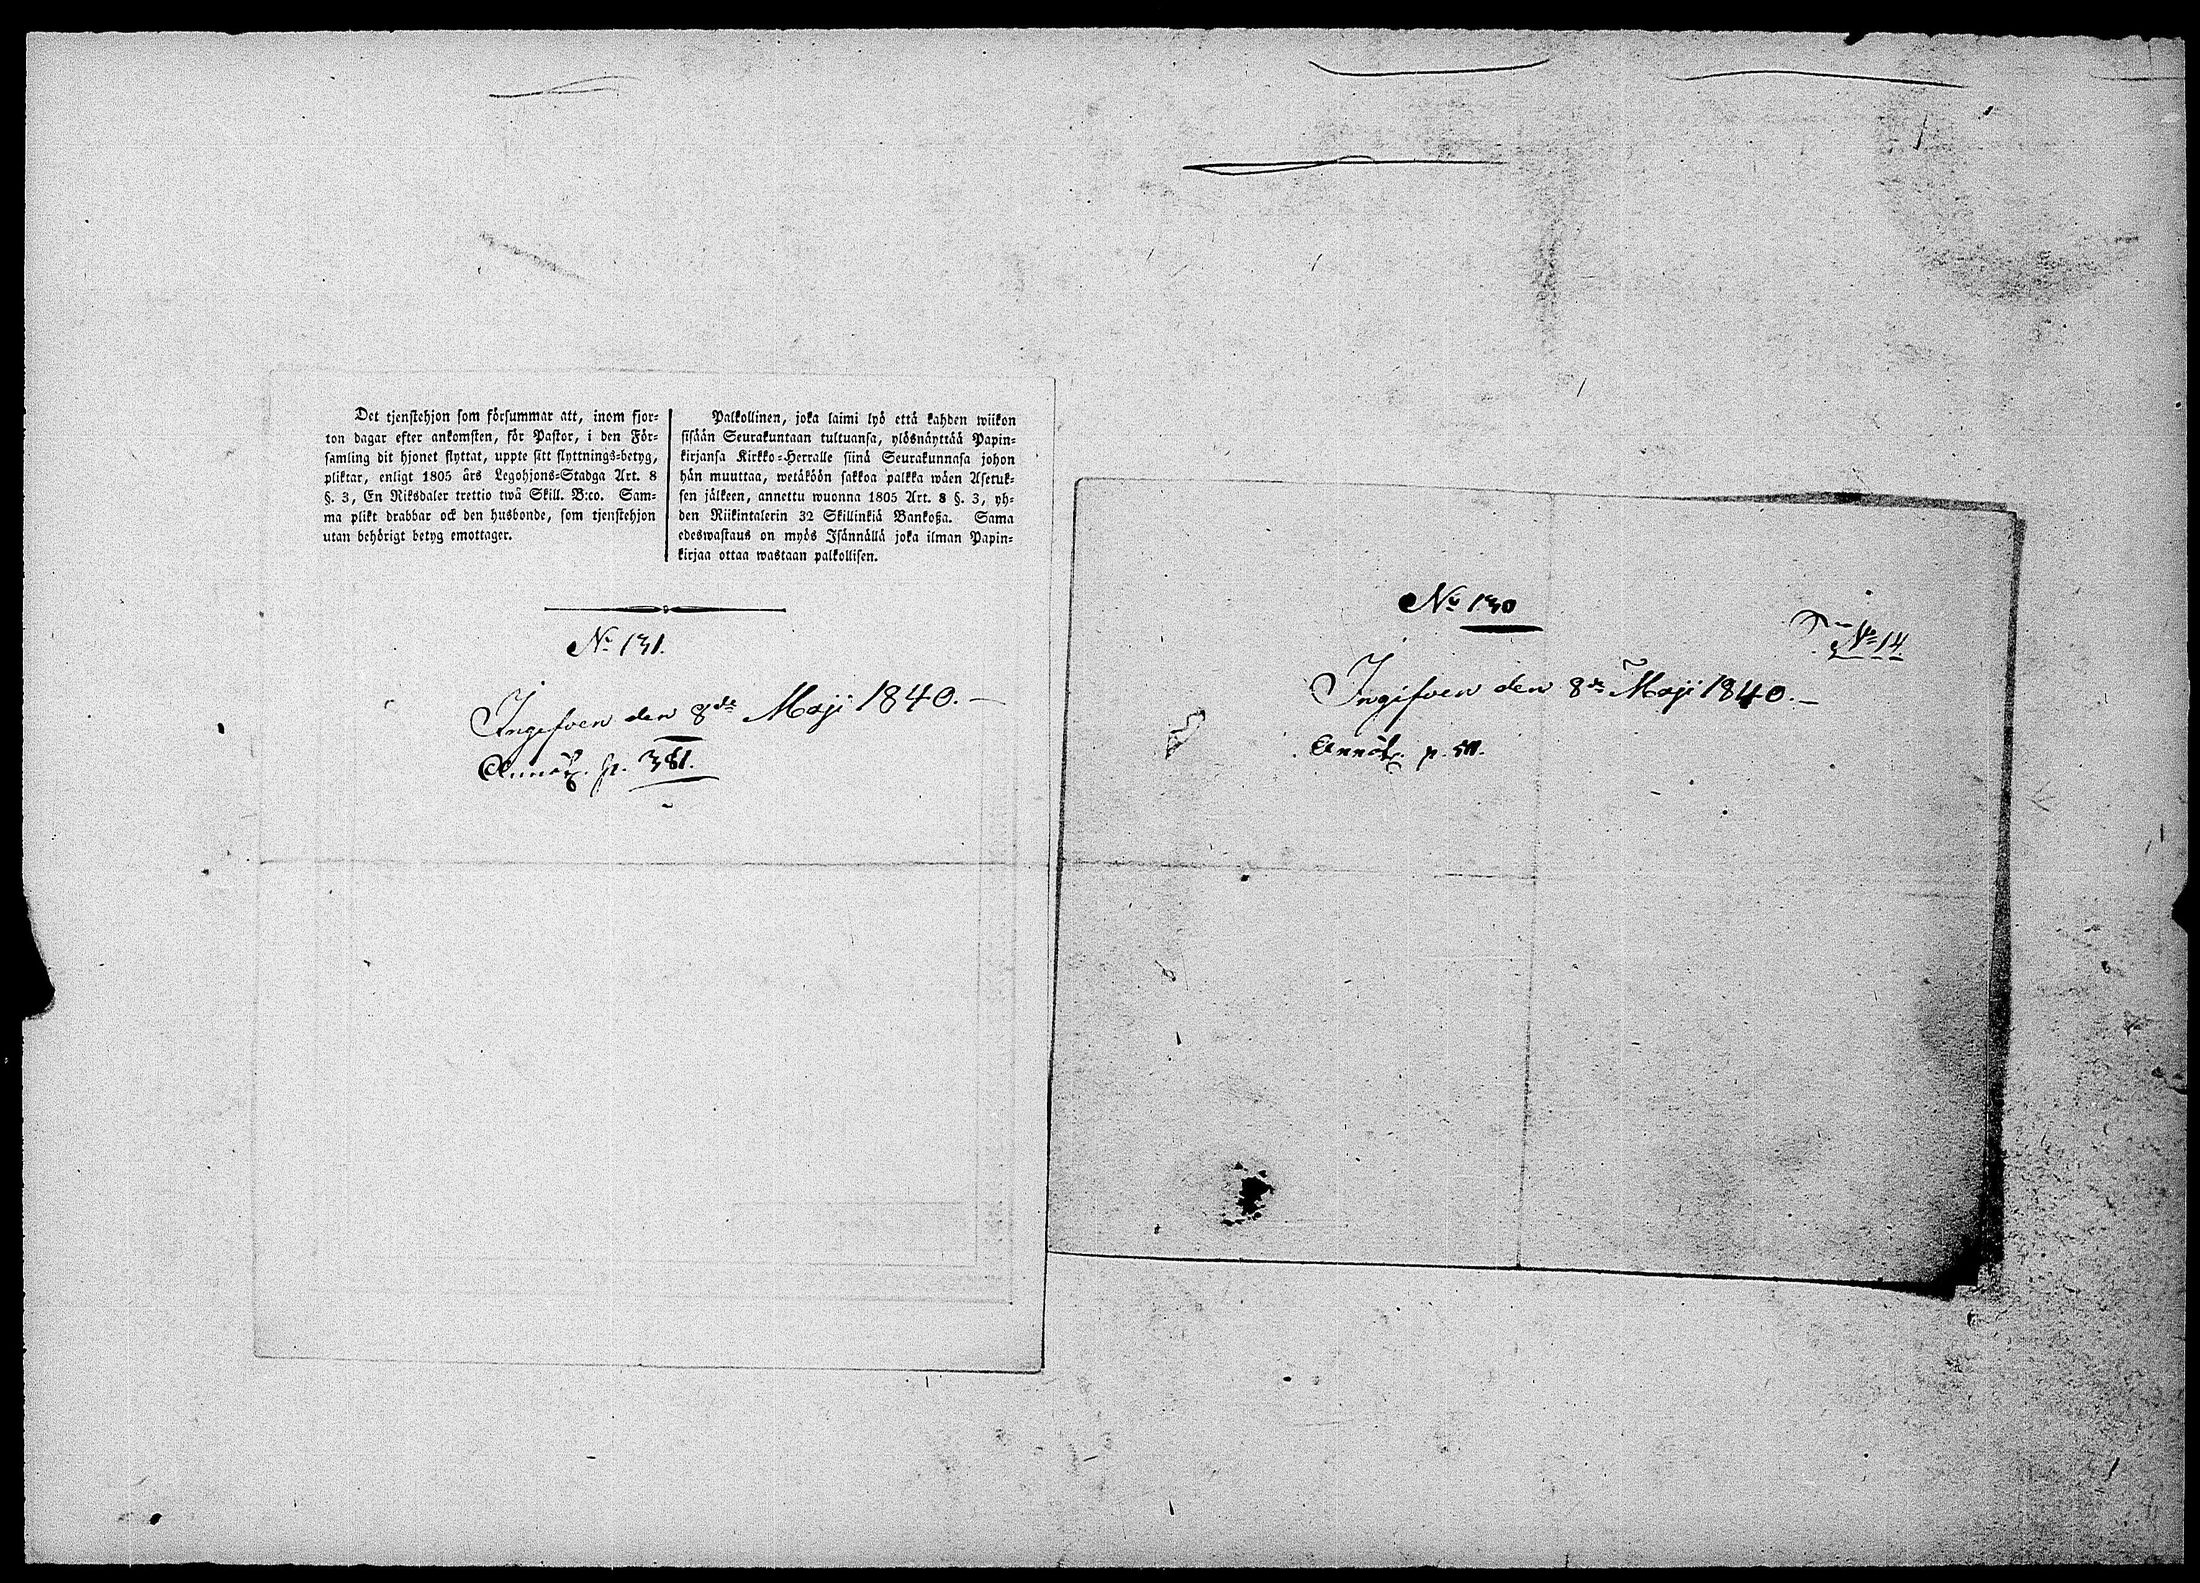 Det tjenstehjon som försummar att, inom fjor-
ton dagar efter ankomsten, för Pastor, i den För-
samling dit hjonet flyttat, uppte sitt flyttnings-betyg,
pliktar, enligt 1805 års Legohjons-Stadga Art. 8
§. 3, En Riksdaler trettio twå Skill. B:co. Sam-
ma plikt drabbar ock den husbonde, som tjenstehjon
utan behörigt betyg emottager.
Palkollinen, joka laimi lyö että kahden wiikon
sisään Seurakuntaan tultuansa, ylösnäyttää Papin-
kirjansa Kirkko-Herralle siinä Seurakunnasa johon
hän muuttaa, wetäköön sakkoa palkka wäen Asetuk-
sen jälkeen, annettu wuonna 1805 Art. 8 §. 3, yh-
den Riikintalerin 32 Skillinkiä Bankoßa. Sama
edeswastaus on myös Isännällä joka ilman Papin-
kirjaa ottaa wastaan palkollisen.
No 131.
Ingifven den 8de Maji 1840.
Annot. p. 381.
No 130
No 14
Ingifven den 8de Maji 1840.
Annot. p.